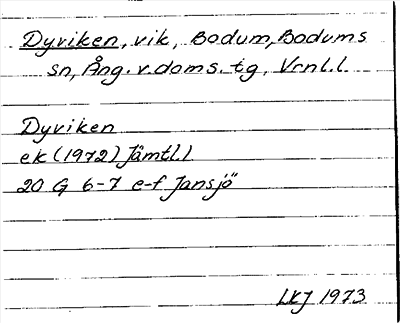 Dyviken, vik, Bodum, Bodums
sn, Ång. v. doms. tg, Vrnl. l.
Dyviken
ek (1972) Jämtl. l
20 G 6-7 e-f Jansjö
LKJ 1973